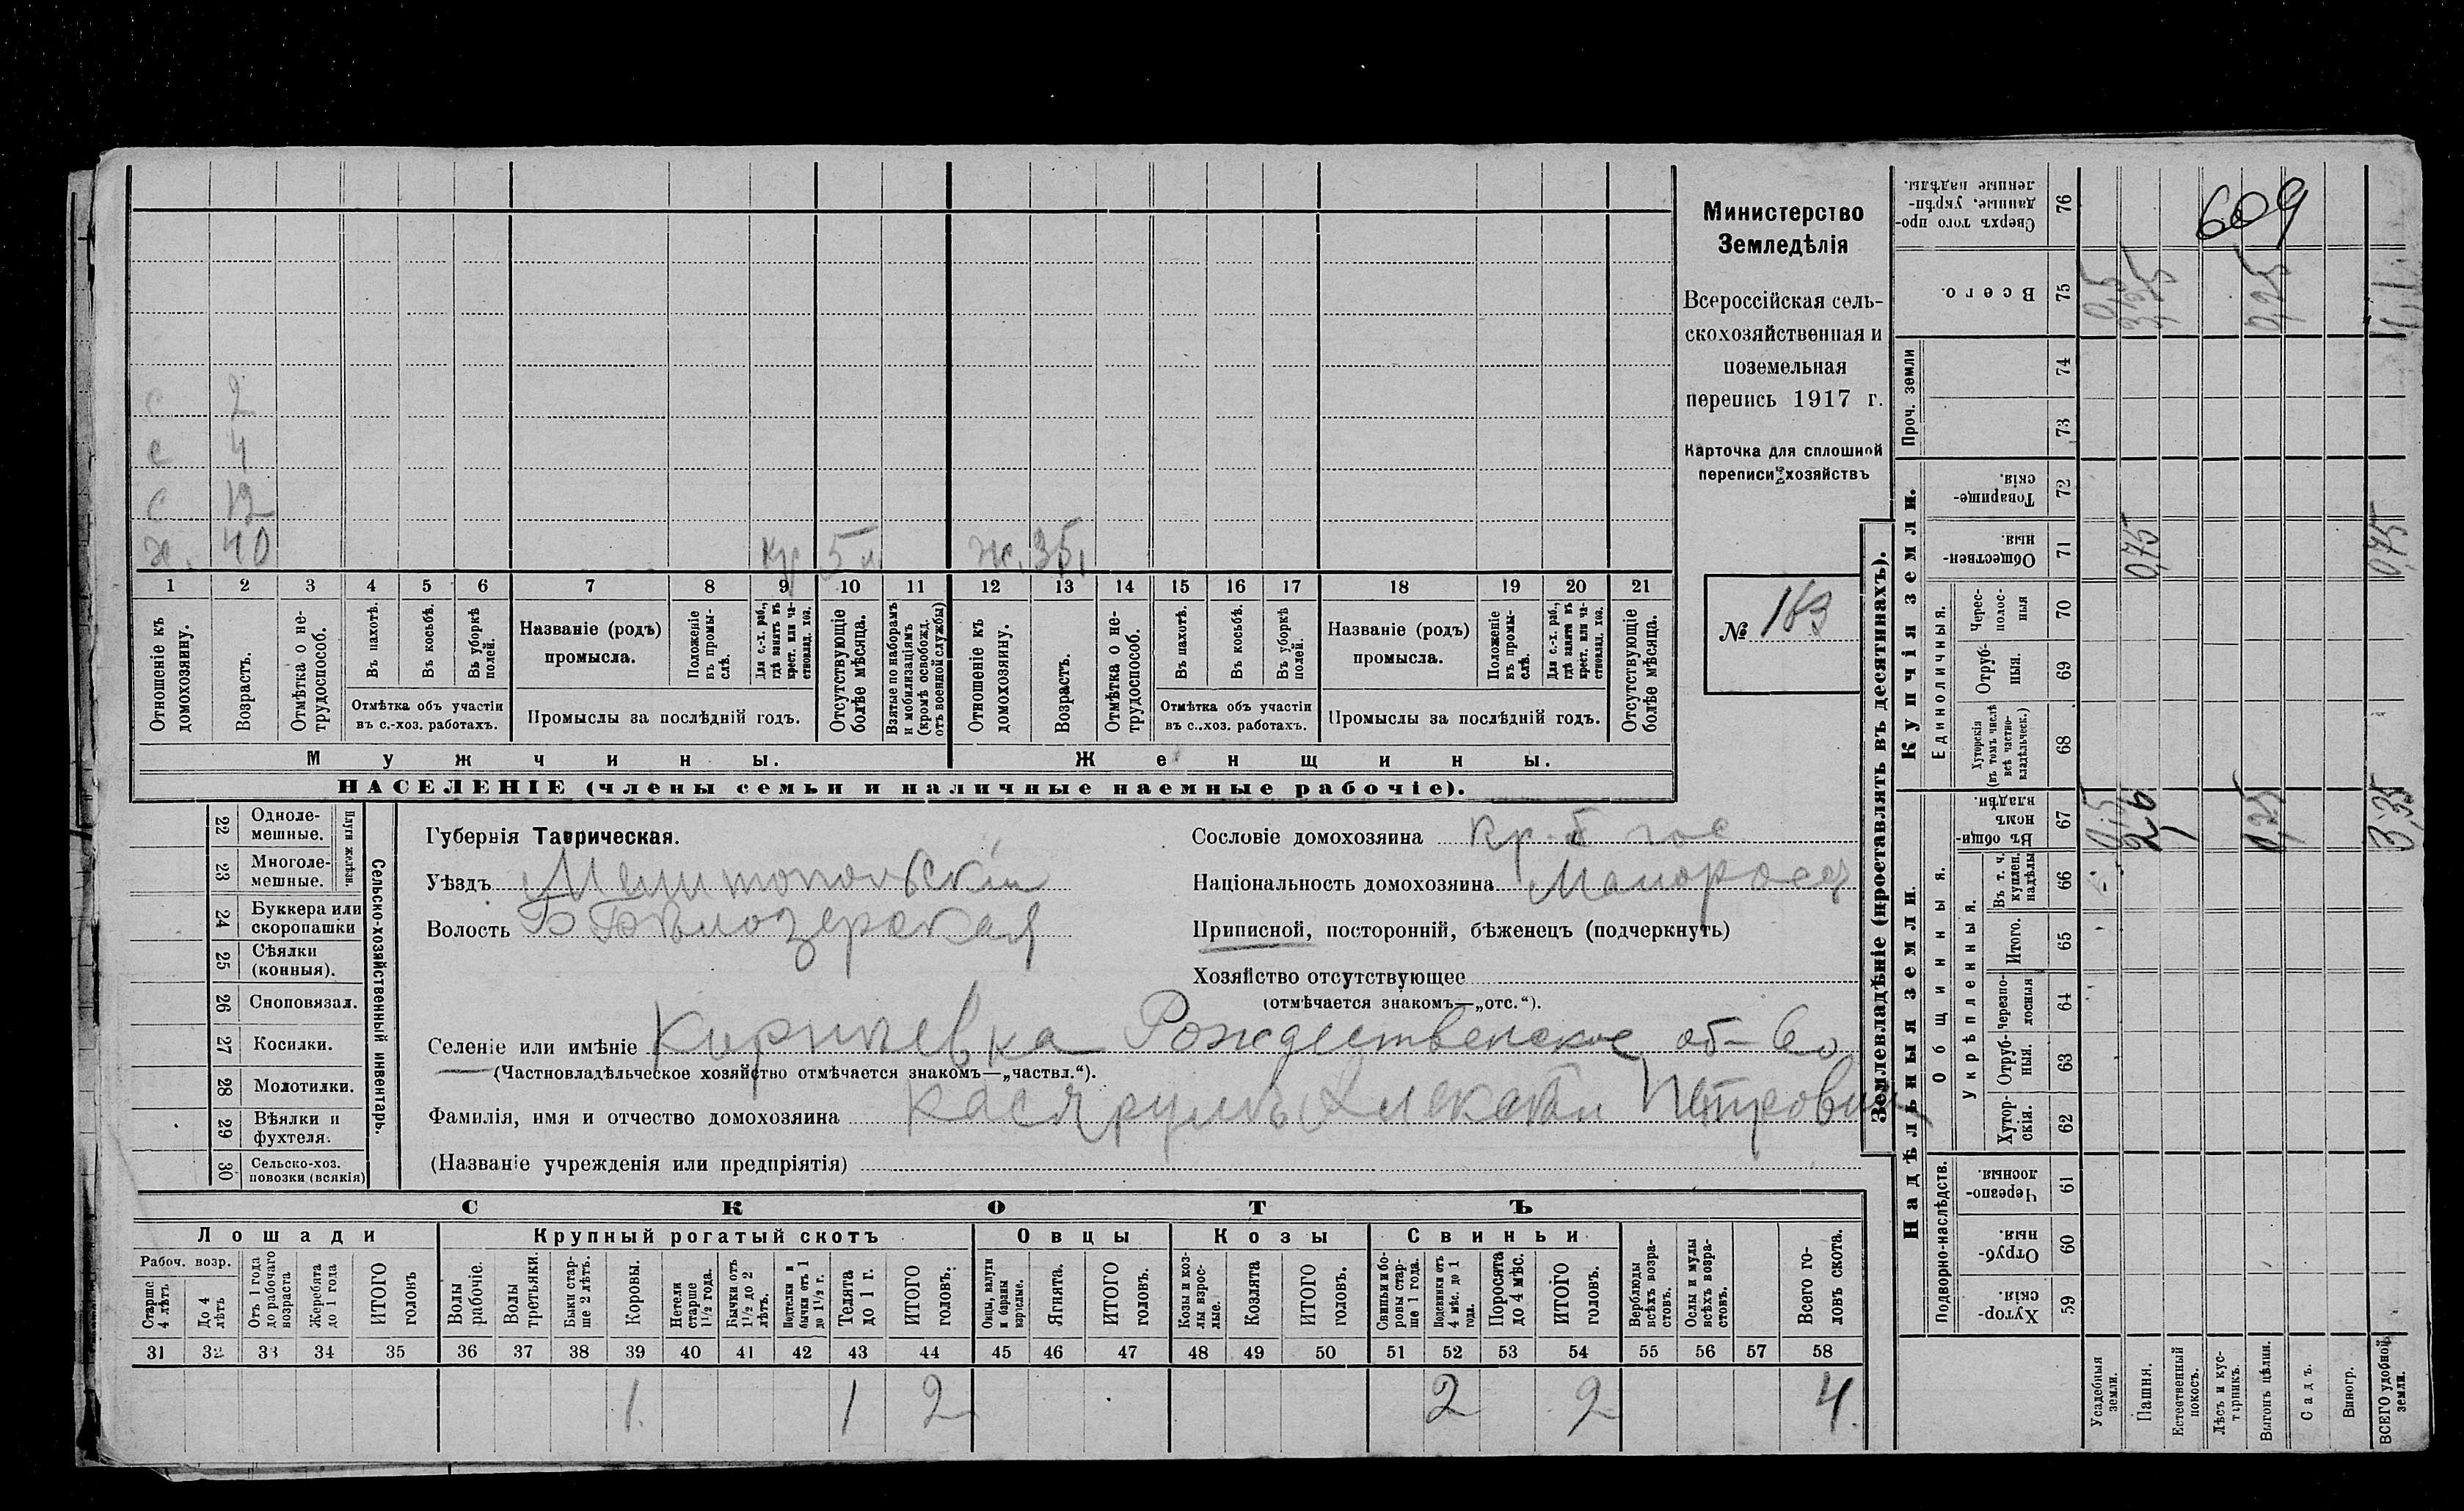 Министерство
Земледѣлія
Всероссійская сель-
скохозяйственная и
поземельная
перепись 1917 г.
Карточка для сплошной
переписи хозяйствъ
№ 163
609
с 2
с 4
с 12
х. 40 кр 5 л. ж. 35
1 2 3 4 5 6 7 8 9 10 11 12 13 14 15 16 17 18 19 20 21
Отношеніе къ домохозяину.
Возрастъ.
Отмѣтка о не-трудоспособ.
Въ пахотѣ.
Въ косьбѣ.
Въ уборкѣ полей.
Отмѣтка объ участіи
въ с.-хоз. работахъ.
Названіе (родъ)
промысла.
Положеніе въ промы-слѣ.
Для с.-х. раб., гдѣ занятъ въ крест. или ча-стновлад. хоз.
Промыслы за послѣдній годъ.
Отсутствующіе болѣе мѣсяца.
Взятые по наборамъ и мобилизаціямъ (кромѣ освобожд. отъ военной службы)
Отношеніе къ домохозяину.
Возрастъ.
Отмѣтка о не-трудоспособ.
Въ пахотѣ.
Въ косьбѣ.
Въ уборкѣ полей.
Отмѣтка объ участіи
въ с.-хоз. работахъ.
Названіе (родъ)
промысла.
Положеніе въ промы-слѣ.
Для с.-х. раб., гдѣ занята въ крест. или ча-стновлад. хоз.
Промыслы за послѣдній годъ.
Отсутствующіе болѣе мѣсяца.
Мужчины. Женщины.
НАСЕЛЕНІЕ (члены семьи и наличные наемные рабочіе).
22 Одноле-мешные.
23 Многоле-мешные.
Плуги желѣзн.
24 Буккера или скоропашки
25 Сѣялки (конныя).
26 Сноповязал.
27 Косилки.
28 Молотилки.
29 Вѣялки и фухтеля.
30 Сельско-хоз. повозки (всякія)
Сельско-хозяйственный инвентарь.
Губернія Таврическая.
Уѣздъ Мелитопольскій
Волость Б Бѣлозерская
Сословіе домохозяина кр. б гос
Національность домохозяина Малоросс
Приписной, посторонній, бѣженецъ (подчеркнуть)
Хозяйство отсутствующее
(отмѣчается знакомъ—„отс.“).
Селеніе или имѣніе Кирпиевка Рождественское об-во
(Частновладѣльческое хозяйство отмѣчается знакомъ—„частвл.“).
Фамилія, имя и отчество домохозяина Алексѣй Петрович
(Названіе учрежденія или предпріятія)
СКОТЪ
Лошади Крупный рогатый скотъ Овцы Козы Свиньи
Рабоч. возр.
Старше 4 лѣтъ
До 4 лѣтъ
Отъ 1 года до рабочаго возраста
Жеребята до 1 года
ИТОГО головъ
Волы рабочіе.
Волы третьяки.
Быки стар-ше 2 лѣтъ.
Коровы.
Нетели старше 1½ года.
Бычки отъ 1½ до 2 лѣтъ.
Подтелки и бычки отъ 1 до 1½ г.
Телята до 1 г.
ИТОГО головъ.
Овцы, валухи и бараны взрослые.
Ягнята.
ИТОГО головъ.
Козы и коз-лы взрос-лые.
Козлята
ИТОГО головъ.
Свиньи и бо-ровы стар-ше 1 года.
Подсвинки отъ 4 мѣс. до 1 года.
Поросята до 4 мѣс.
ИТОГО головъ.
Верблюды всѣхъ возра-стовъ.
Ослы и мулы всѣхъ возра-стовъ.
Всего го-ловъ скота.
31 32 33 34 35 36 37 38 39 40 41 42 43 44 45 46 47 48 49 50 51 52 53 54 55 56 57 58
1 1 2 2 2 4
Землевладѣніе (проставлять въ десятинахъ).
Надѣльныя земли. Купчія земли. Проч. земли
Подворно-наслѣдств.
Общинныя.
Укрѣпленныя.
Единоличныя.
Хутор-скія. 59
Отруб-ныя. 60
Черезпо-лосныя 61
Хутор-скія. 62
Отруб-ныя. 63
Черезпо-лосныя 64
Итого. 65
Въ т. ч. куплен. надѣлы 66
Въ общин-номъ владѣн. 67
Хуторскія (въ томъ числѣ всѣ частно-владѣльческ.) 68
Отруб-ныя. 69
Черес-полос-ныя 70
Обществен-ныя. 71
Товарище-скія. 72
73
74
Всего. 75
Сверхъ того про-данные, укрѣп-ленные надѣлы. 76
Усадебныя земли. 0,5 0,5
Пашня. 2,6 0,75 3,35
Естественный покосъ.
Лѣсъ и кус-тарникъ.
Выгонъ цѣлин. 0,25 0,25
Садъ.
Виногр.
ВСЕГО удобной земли. 3,35 0,75 4,1